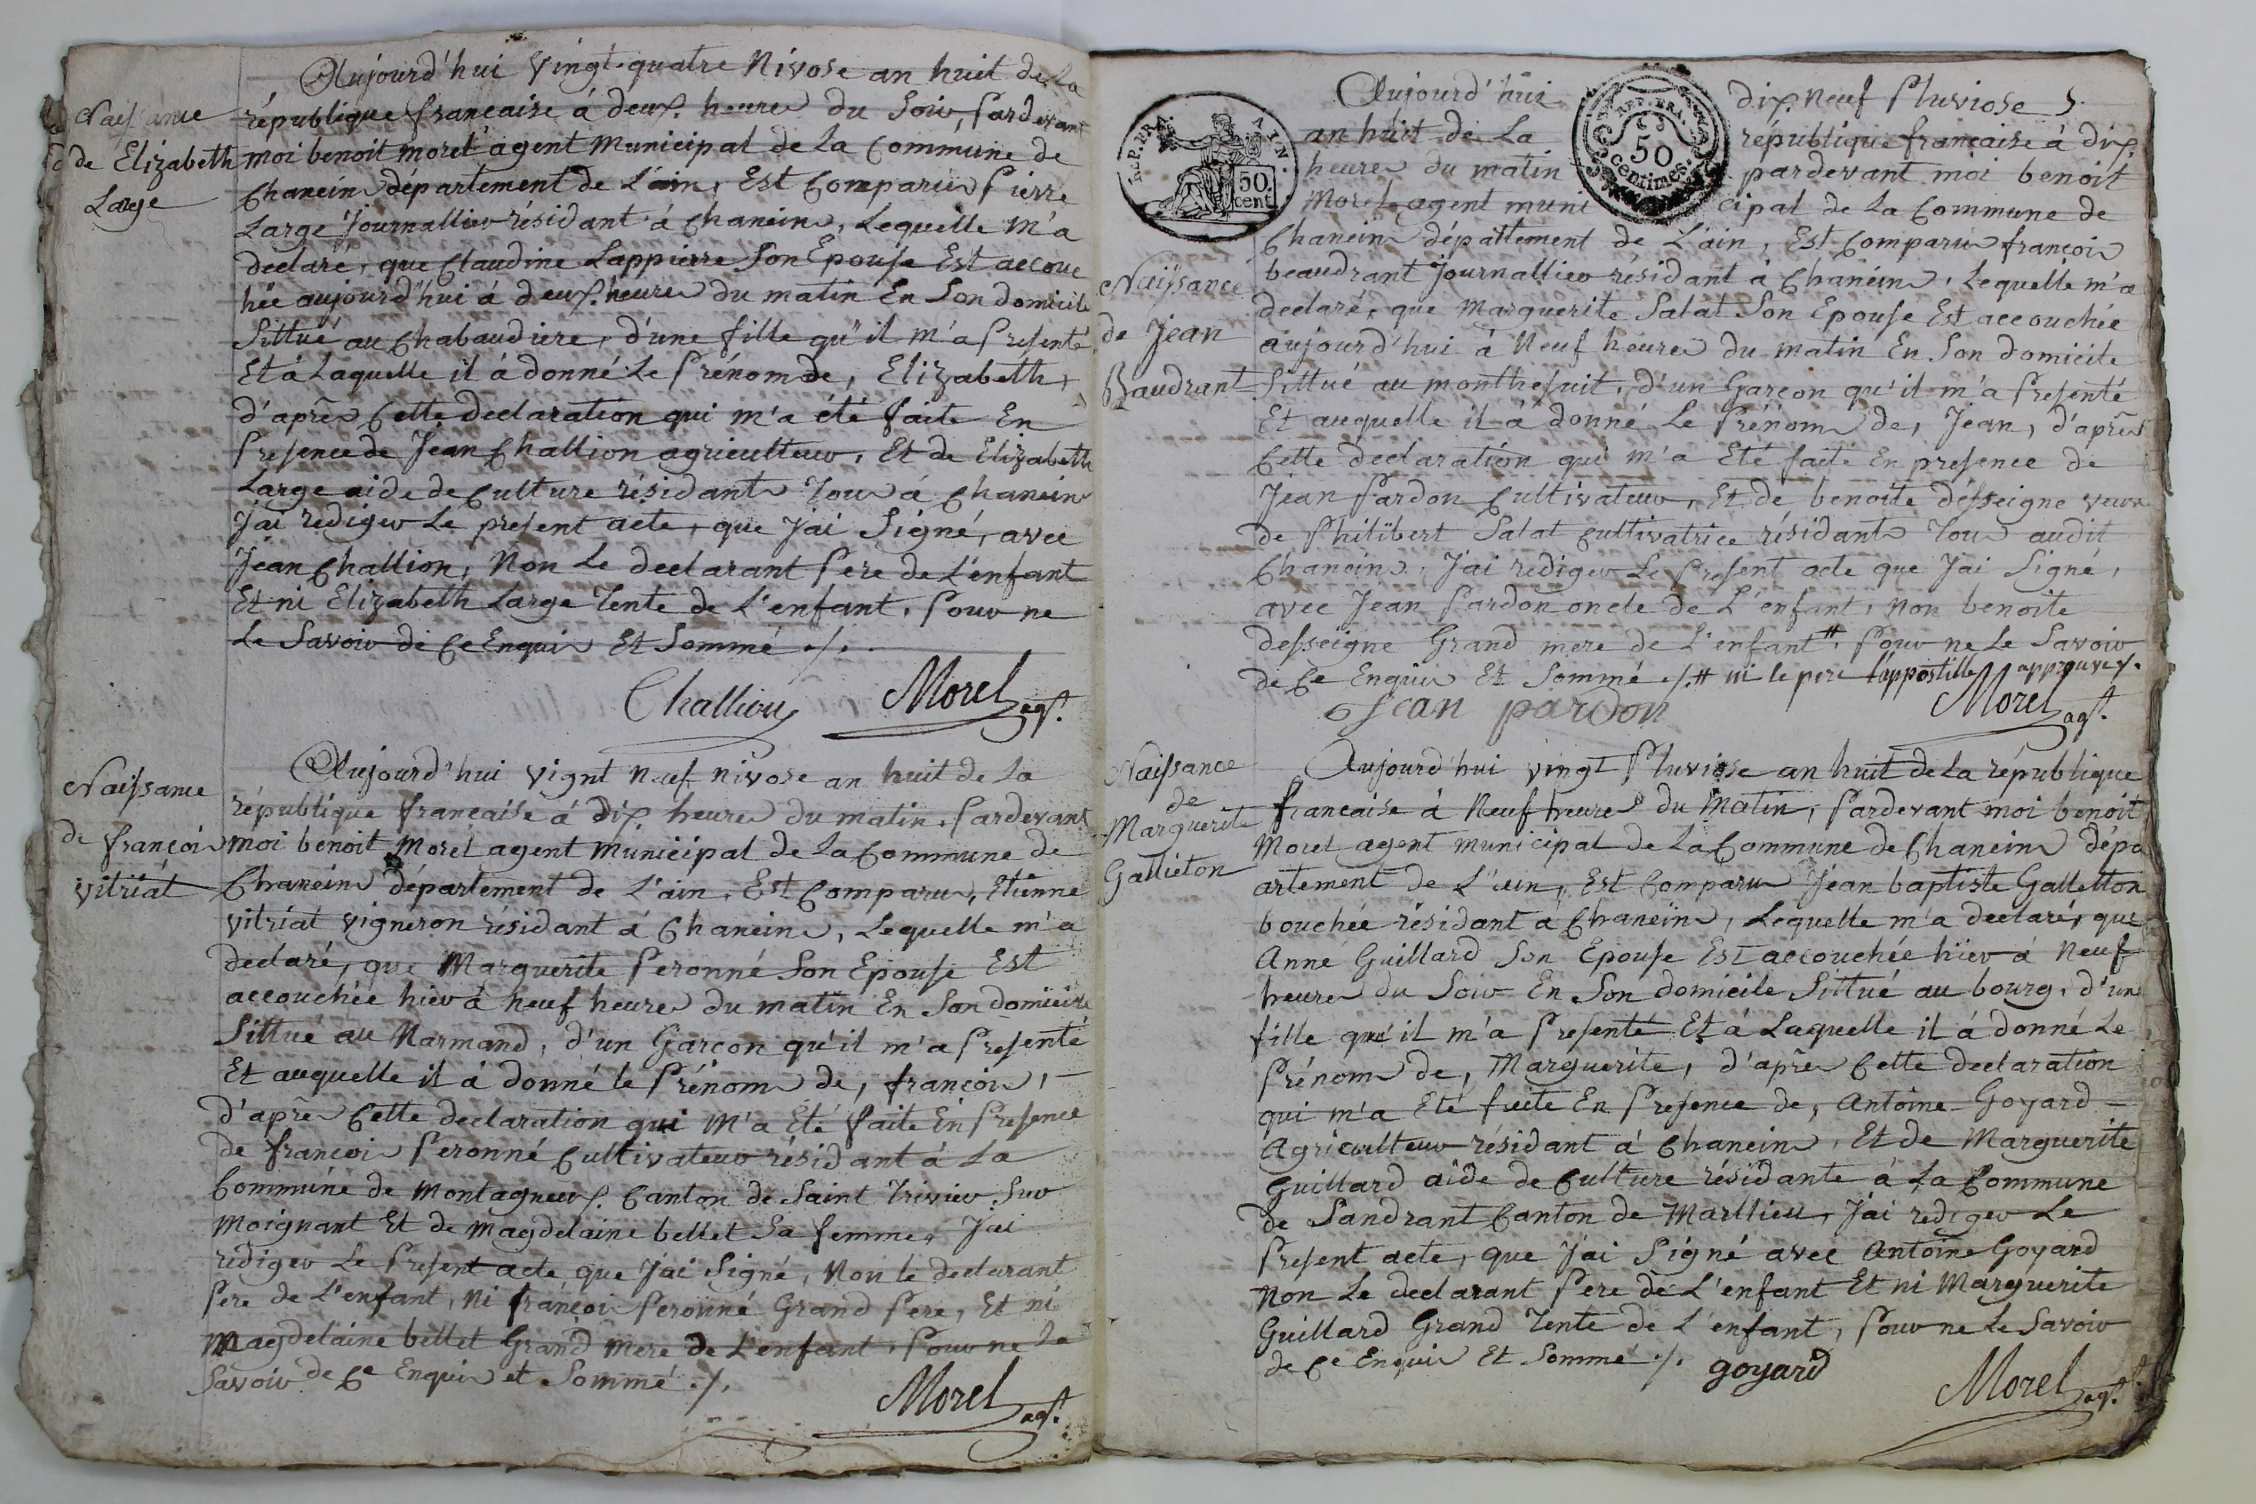 Naissance
de Elizabeth
Large
Aujourd'hui vingt-quatre Nivose an huit de La
république francaise á deux heures du Soir, Pardevant
moi benoit morel agent municipal de La Commune de
Chaneins département de L'ain, Est Comparus Pierre
Large Journallier résidant á Chaneins, Lequelle m'a
declaré, que Claudine Lappierre Son Epouse Est accouc
hée aujourd'hui á deux heures du matin En Son domicile
Sittué au Chabaudiere, d'une fille qu'il m'a Presenté
Et á Laquelle il á donné Le Prénom de, Elizabeth,
d'aprês Cette declaration qui m'a été faite En
Presence de Jean Challion agriculteur, Et de Elizabeth
Large aide de Culture résidants Tous á Chaneins
J'ai rediger Le present acte, que J'ai Signé, avec
Jean Challion, Non Le declarant Pere de L'enfant
Et ni Elizabeth Large Tente de L'enfant, Pour ne
Le Savoir de Ce Enquis Et Sommé ./.
Challion Morel agt.
Naissance
de françois
vitriat
Aujourd'hui vignt neuf nivose an huit de La
république francaise á dix heures du matin, Pardevant
moi benoit Morel agent municipal de La Commune de
Chaneins département de L'ain, Est Comparus, Etienne
vitriat vigneron résidant á Chaneins, Lequelle m'a
declaré, que Marguerite Peronné Son Epouse Est
accouchée hier á neuf heures du matin En Son domicile
Sittué au Marmand, d'un Garcon qu'il m'a Presenté
Et auquelle il á donné le Prénoms de, françois,
d'aprês Cette declaration qui M'a Eté faite En Presence
de françois Peronné Cultivateur résidant á La
Commune de Montagneux Canton de Saint Trivier Sur
Moignant Et de Magdelaine bellet Sa femme, J'ai
rediger Le Present acte que J'ai Signé, Non le declarant
Pere de L'enfant, Ni françois Peronné Grand Pere, Et ni
Magdelaine bellet Grand Mere de L'enfant, Pour ne Le
Savoir de Ce Enquis et Sommé ./.
Morel agt.
R.P.FRA. AIN.
50.
cent.
REP. FRA.
50
centimes.
Naissance
de Jean
Baudrant
Aujourd'hui dix Neuf Pluviose
an huit de La république francaise á dix
heures du matin pardevant moi benoit
Morel agent muni cipal de La Commune de
Chaneins département de L'ain, Est Comparus françois
beaudrant Journallier résidant á Chaneins, Lequelle m'a
declaré, que Marguerite Salat Son Epouse Est accouchée
aujourd'hui á Neuf heures du matin En Son domicile
Sittué au monthefuit, d'un Garcon qu'il m'a Presenté
Et auquelle il á donné Le Prénoms de, Jean, d'aprês
Cette declaration qui m'a Eté faite En presence de
Jean Pardon Cultivateur, Et de benoite desseigne veuve
de Philibert Salat cultivatrice résidants Tous audit
Chaneins, J'ai rediger Le Present acte que J'ai Signé,
avec Jean Pardon oncle de L'enfant, Non benoite
desseigne Grand mere de L'enfant # Pour ne Le Savoir
de Ce Enquis Et Sommé ./. # ni le pere l'appostille approuvé ./.
Jean pardon Morel agt.
Naissance
de
Marguerite
Gallieton
Aujourd'hui vingt Pluviose an huit de La république
francaise á Neuf heures du Matin, Pardevant moi benoit
Morel agent municipal de La Commune de Chaneins dépa
artement de L'ain, Est Comparus Jean baptiste Galletton
bouchée résidant á Chaneins, Lequelle m'a declaré, que
Anne Guillard Son Epouse Est accouchée hier á Neuf
heures du Soir En Son domicile Sittué au bourg, d'une
fille qu'il m'a Presenté Et á Laquelle il á donné Le
Prénoms de, Marguerite, d'aprês Cette declaration
qui m'a Eté faite En Presence de, Antoine Goyard
Agriculteur résidant á Chaneins, Et de Marguerite
Guillard aide de Culture résidante á La Commune
de Sandrant Canton de Marllieu, J'ai rediger Le
Present acte, que J'ai Signé avec Antoine Goyard
Non Le declarant Pere de L'enfant Et ni Marguerite
Guillard Grand Tente de L'enfant, Pour ne Le Savoir
de Ce Enquis Et Sommé ./. goyard
Morel agt.